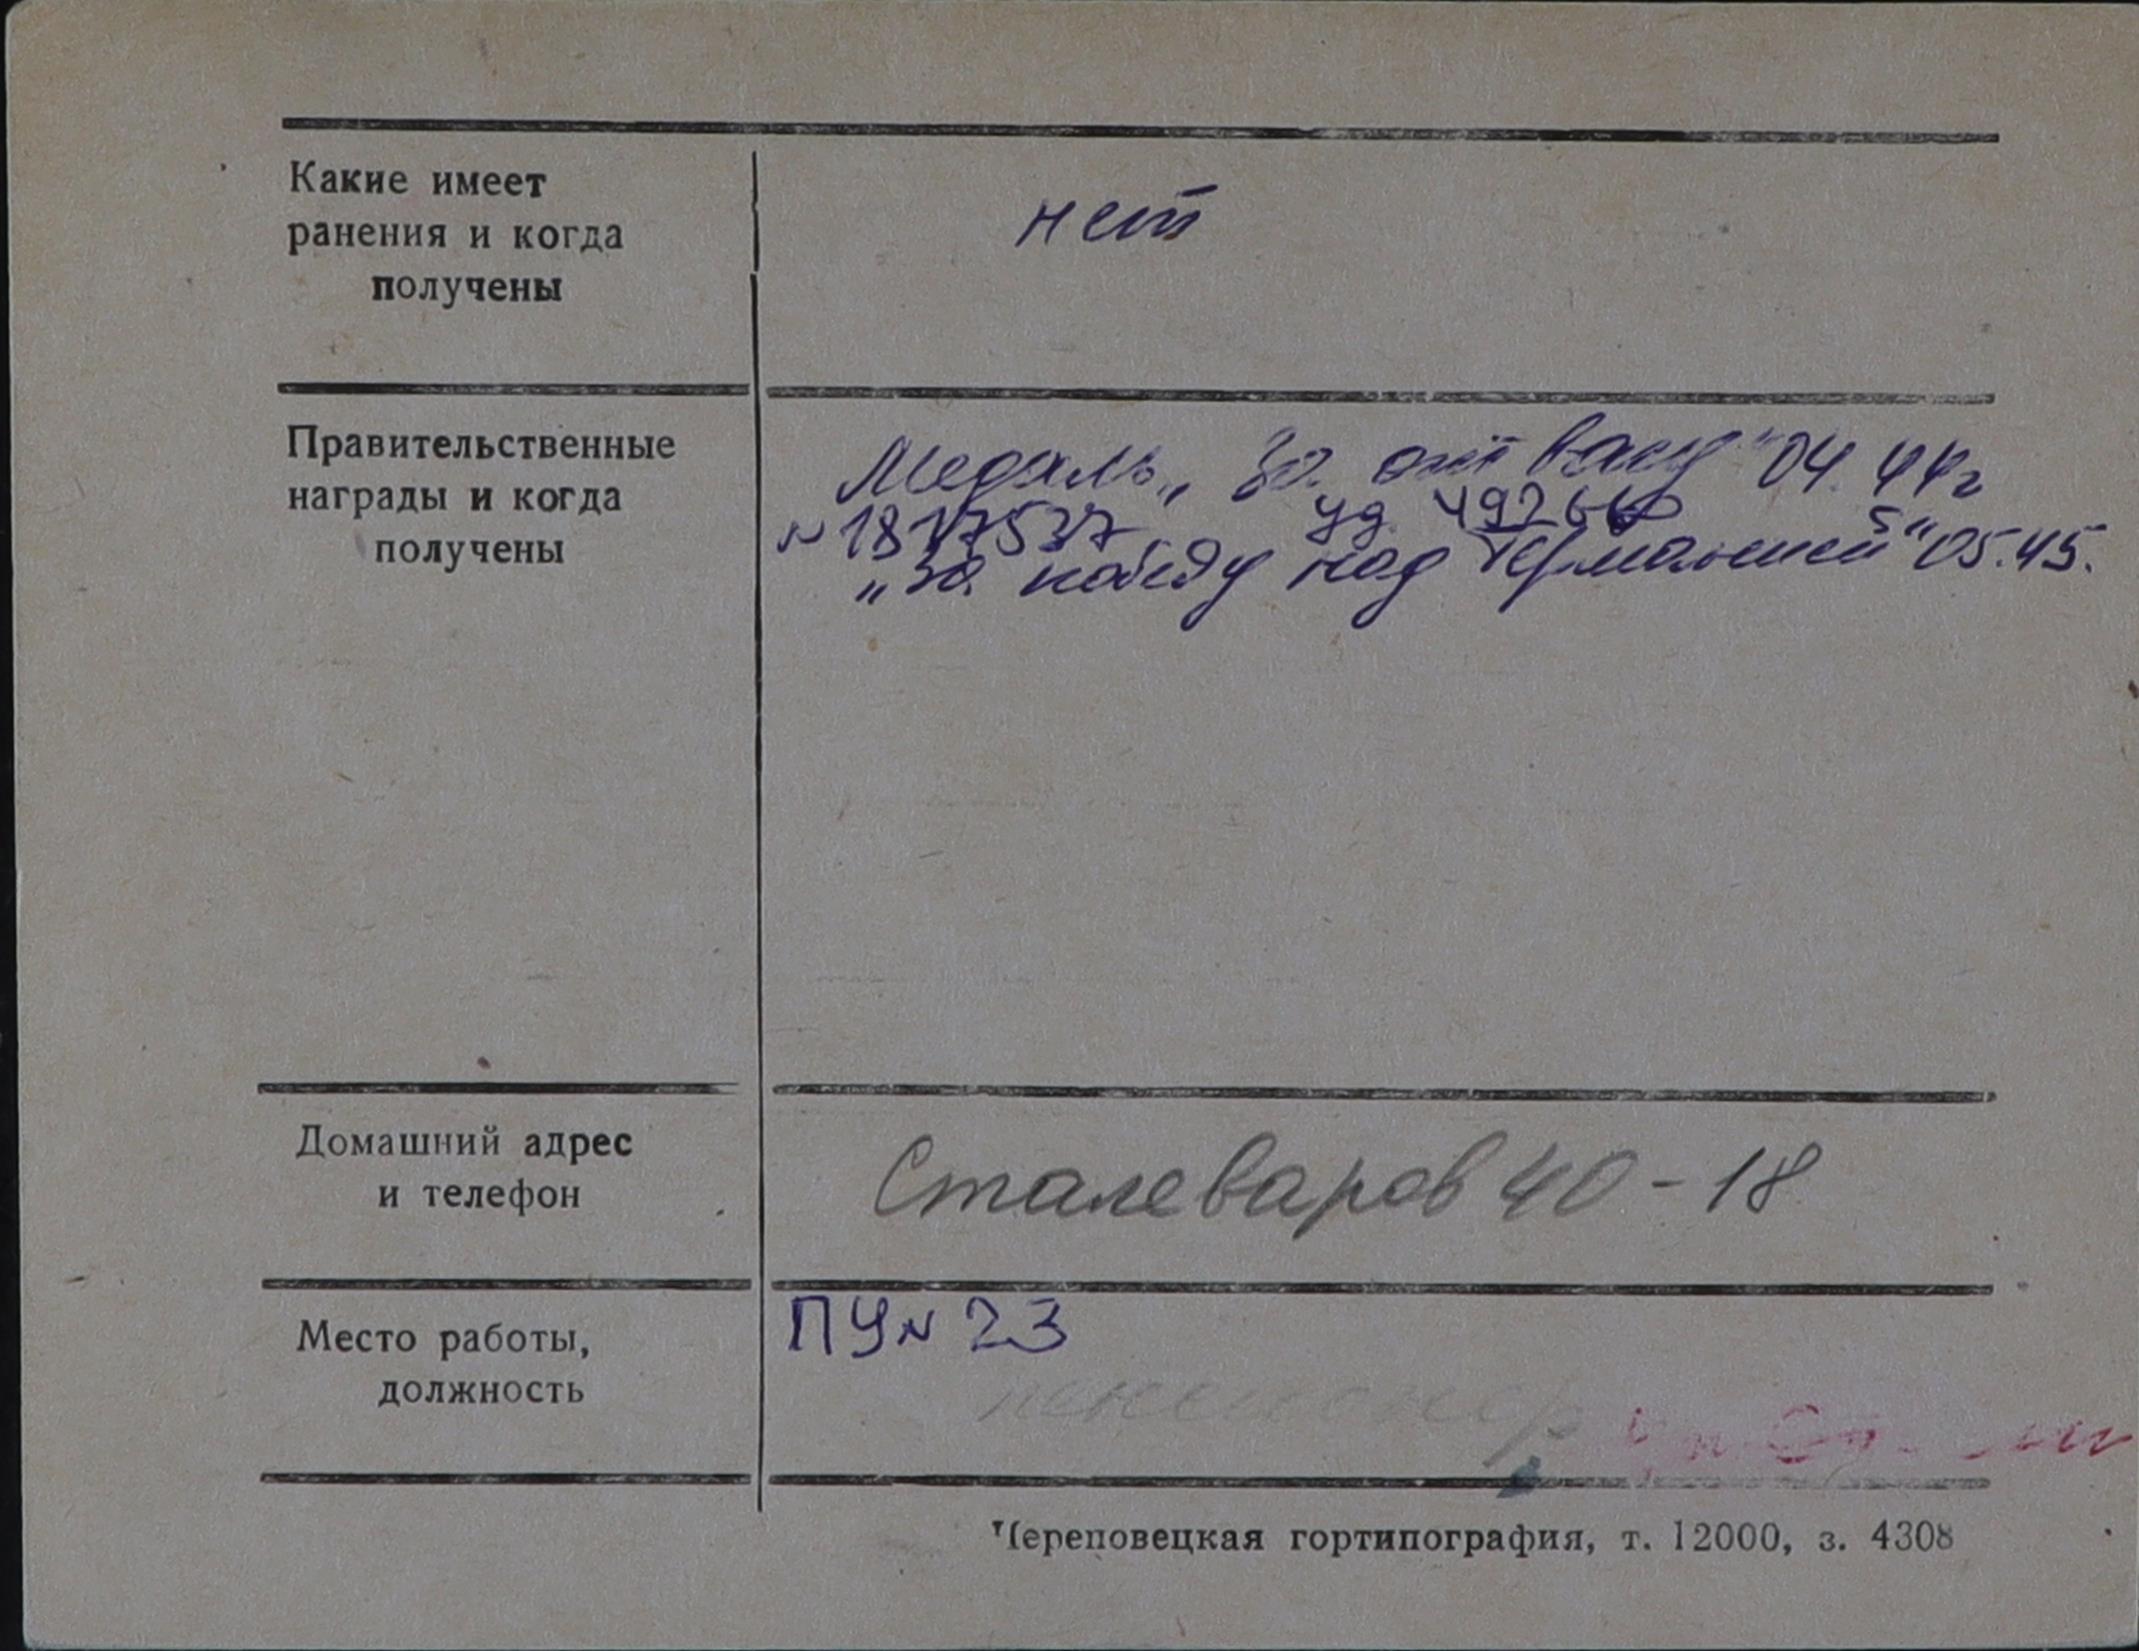 Какие имеет
ранения и когда
получены
нет
Правительственные
награды и когда
получены
Медаль „За отвагу" 04.44г
№1817537 уд. 492660
„За победу над Германией" 05.45.
Домашний адрес
и телефон
Сталеваров 40-18
Место работы,
должность
ПУ№23
пенсионер
Череповецкая гортипография, т. 12000, з. 4308